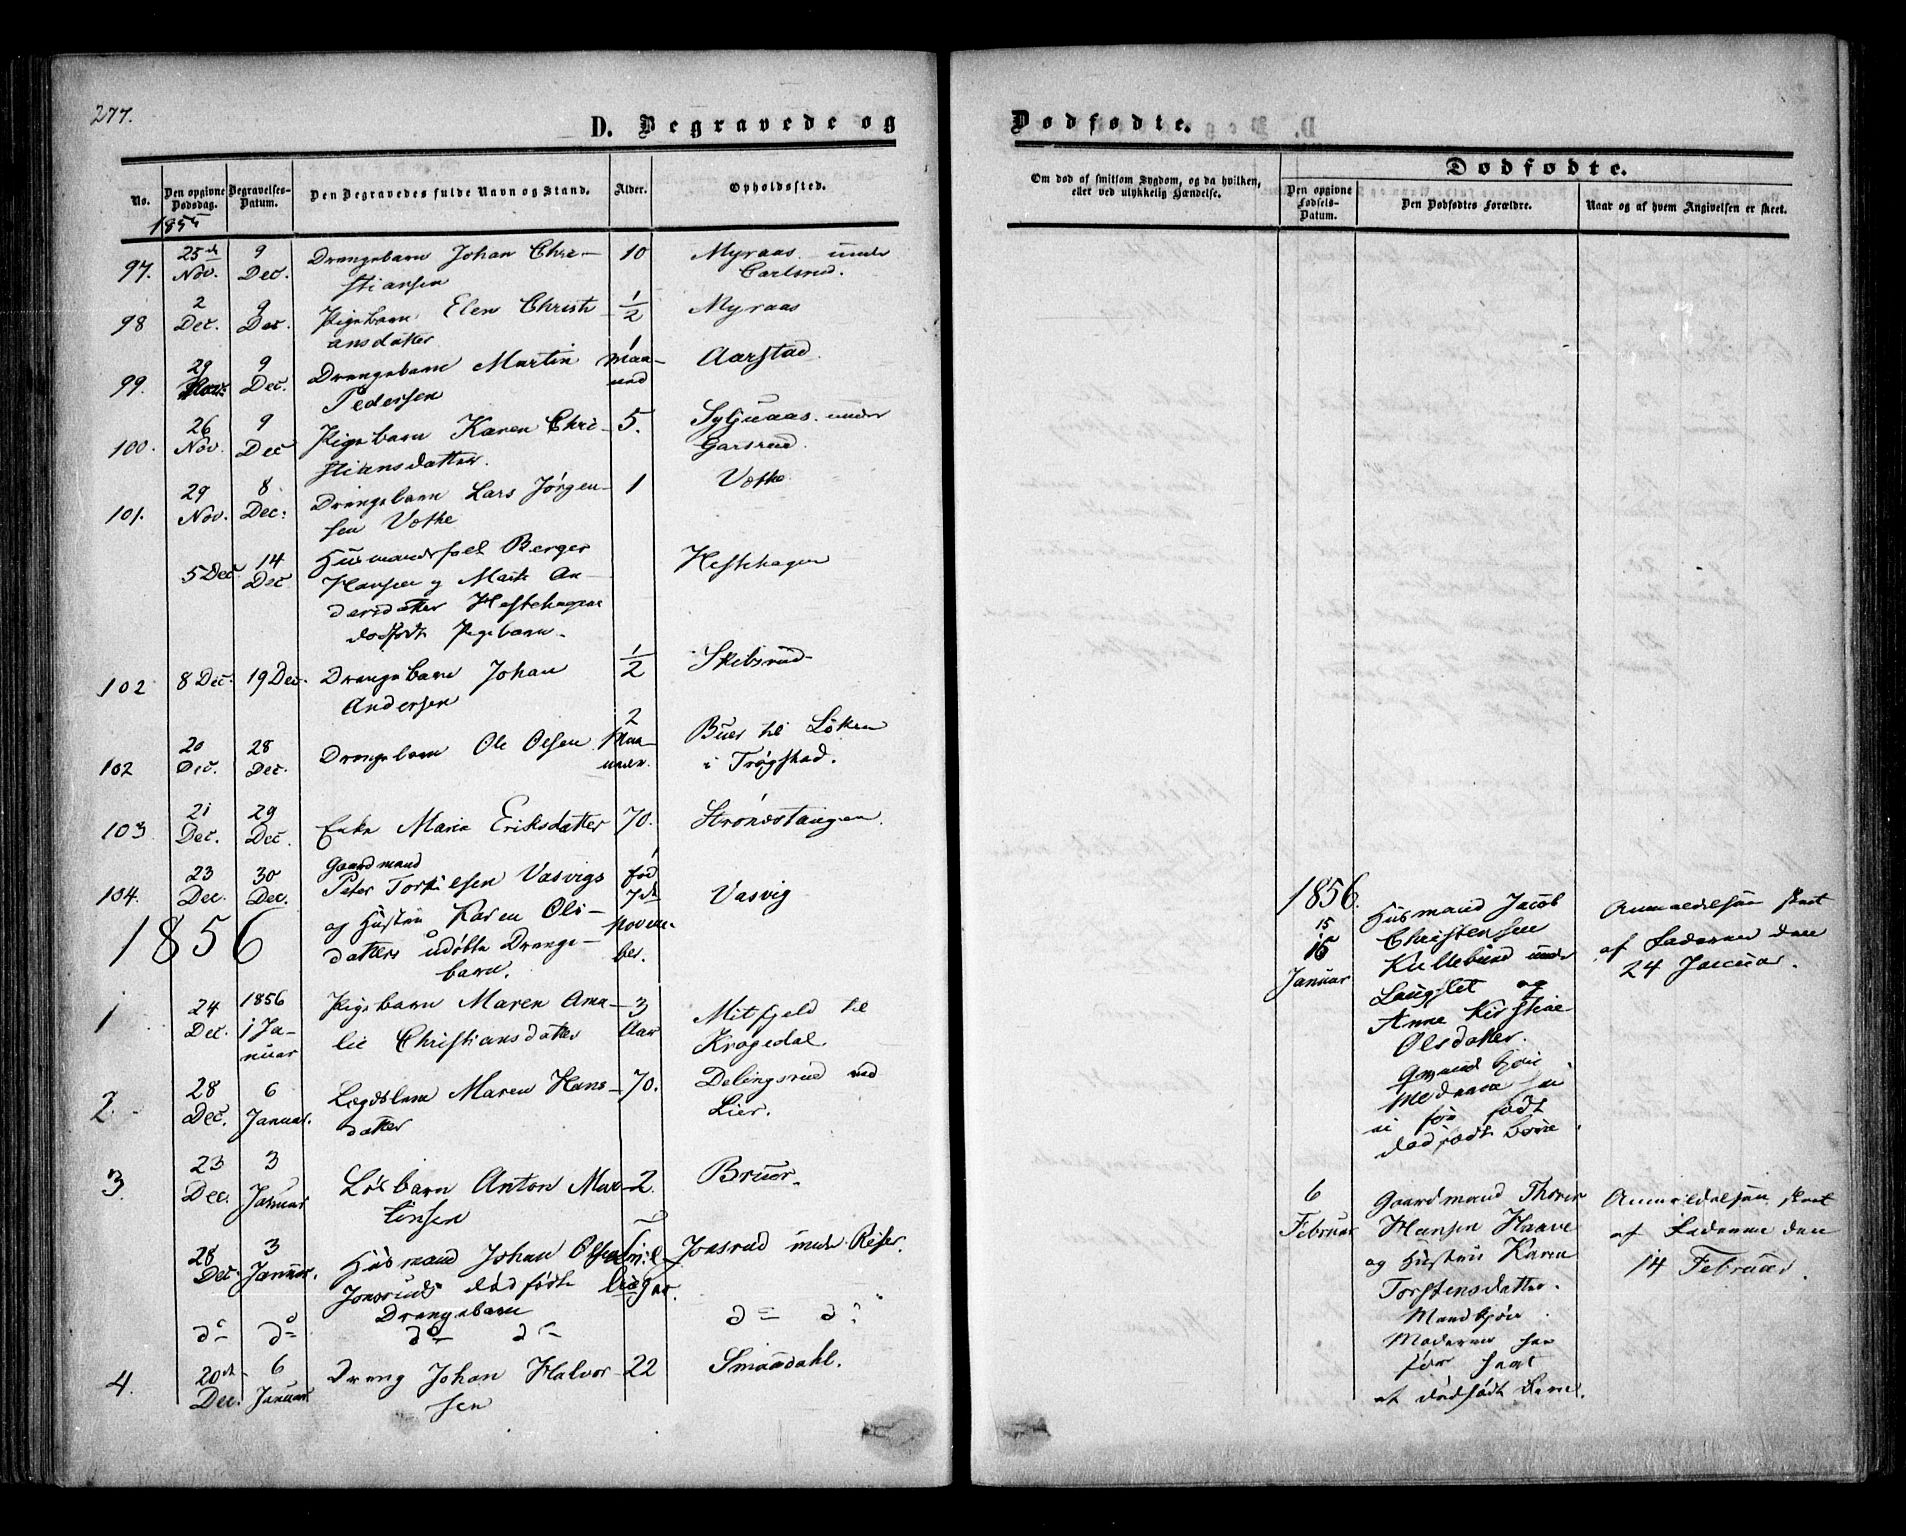 277.
D. Begravede og
No.
Den opgivne Dødsdag.
Begravelses-Datum.
Den Begravedes fulde Navn og Stand.
Alder.
Opholdssted.
1855
97. 25de Nov. 9 Dec. Drengebarn Johan Chri-
stiansen 10 Myraas under Carlsrud.
98 2 Dec. 9 Dec. Pigebarn Elen Christi-
ansdatter 1/2 Myraas
99. 29 Nov. 9 Dec. Drengebarn Martin
Pedersen 1 Maaned Aarstad
100. 26 Nov. 9 Dec Pigebarn Karen Chri-
stiansdatter. 5. under Garsrud.
101. 29 Nov. 8 Dec. Drengebarn Lars Jørgen-
sen 1
5 Dec 14 Dec Husmandsfolk Berger
Hansen og Marte An-
dersdatter Hestehagens
dødfødt Pigebarn. Hestehagen
102 8 Dec. 19 Dec. Drengebarn Johan
Andersen 1/2 Skibsrud
102 20 Dec. 28 Dec. Drengebarn Ole Olsen 2 Maaneder. Buer til Löken
i Trøgstad.
103 21 Dec. 29 Dec. Enke Maria Eriksdatter 70. Strøndstangen.
104. 23 Dec. 30 Dec. Gaardmand
Peter Torkilsen Vasvigs
og Hustru Karen Ols-
datters udøbte Drenge-
barn. fød 7de November. Vasvig
1856
1 24 Dec. 1856 1 Januar Pigebarn Maren Ama-
lie Christiansdatter 3 Aar Mitfjeld til
Krogedal.
2. 28 Dec. 6 Januar. Lægdslem Maren Hans-
datter 70. Delingsrud ved
Lier.
3. 23 Dec. 3 Januar Løsbarn Anton Mar-
tinsen 2. Bruer.
28 Dec. 3 Januar. Husmand Johan Olsen
Jonsruds dødfødte
Drengebarn Tvillinger. Jonsrud under Reiser.
do do do do do do
4. 20de Dec. 6 Januar Dreng Johan Halvor-
sen 22 Smaadahl.
Dødfødte.
Om død af smitsom Sygdom, og da hvilken,
eller ved ulykkelig Hændelse.
Dødfødte.
Den opgivne Fødsels-Datum.
Den Dødfødtes Forældre.
Naar og af hvem Angivelsen er skeet.
1856.
15 Januar
Husmand Jacob
Christensen
Kullebund under
Langslet og
Anne Kirstine
Olsdatter.
Moderen
ei før født
dødfødt Børn.
Anmeldelsen skeet
af Faderen den
24 Januar.
6 Februar
Gaardmand Thorer
Hansen Haave
og Hustru Karen
Torstensdatter.
Mandkjøn.
Moderen har
før havt
et dødfødt Barn.
Anmeldelsen skeet
af Faderen den
14 Februar.